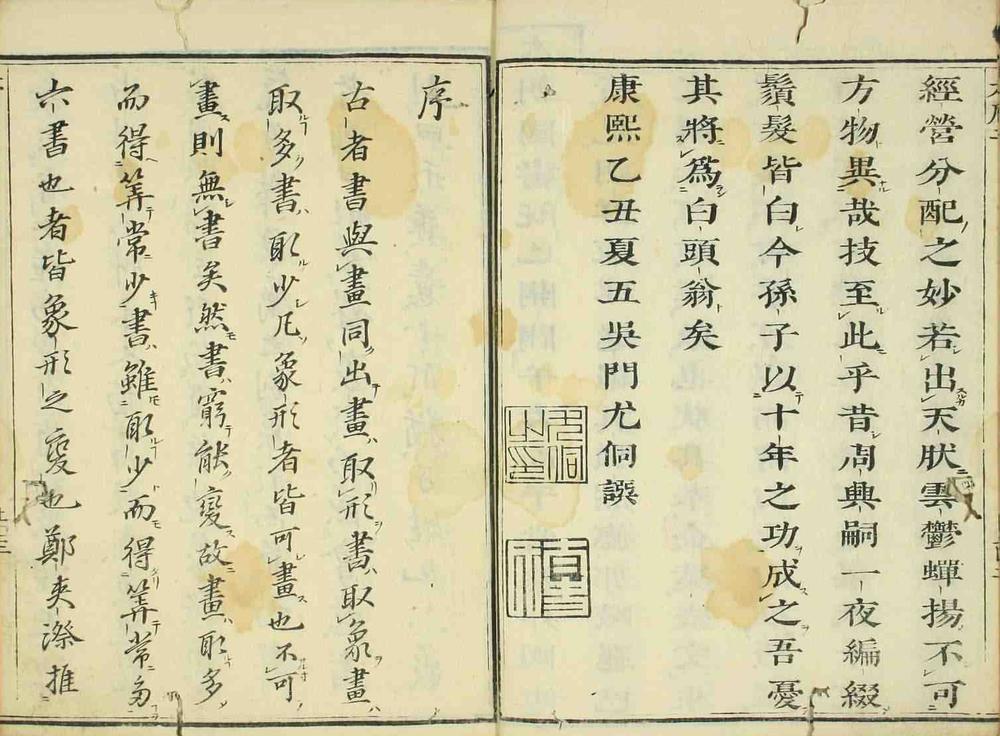 經營分配之妙若出天肰雲鬱蟬揚不可
方物異哉技至此乎昔周興嗣一夜編綴
鬚髮皆白今孫子以十年之功成之吾憂
其將為白頭翁矣
康熙乙丑夏五吳門尤侗譔
序
古者書與畫同出畫取形書取象畫
取多書取少凡象形者皆可畫也不可
畫則無書矣然書窮能變故畫取多
而得筭常少書雖取少而得筭常多
六書也者皆象形之變也鄭夾漈推